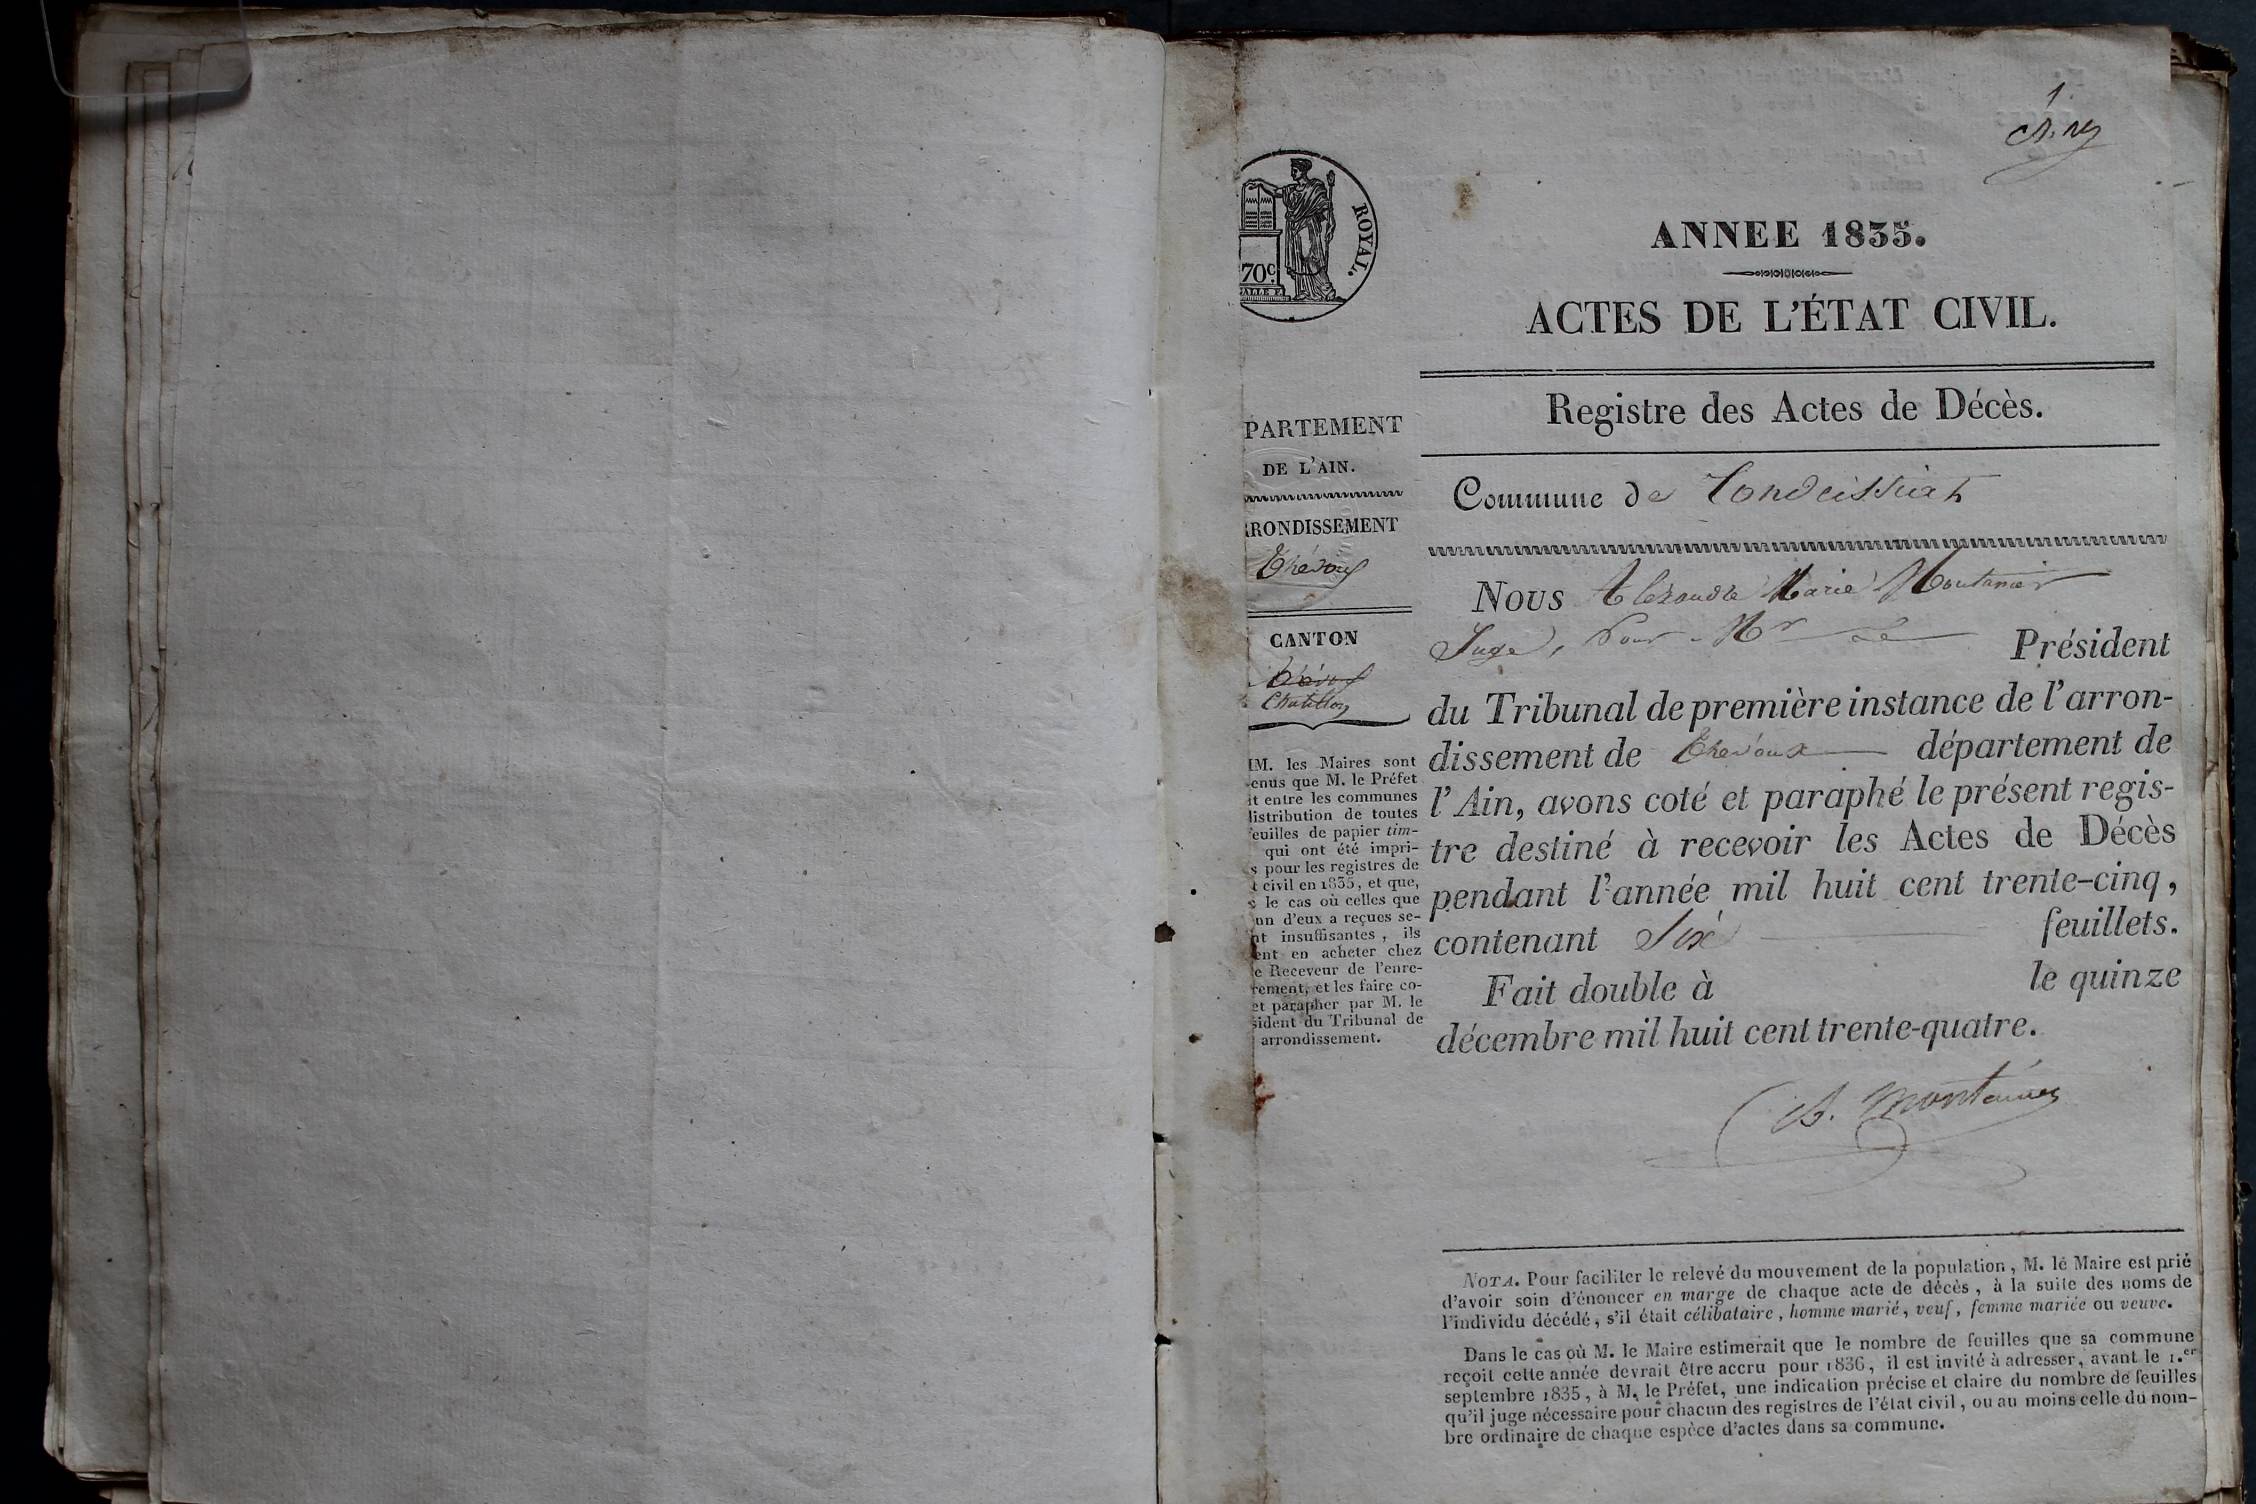 1
ROYAL.
70c.
ANNEE 1835.
ACTES DE L'ÉTAT CIVIL.
Registre des Actes de Décès.
PARTEMENT
DE L'AIN.
RONDISSEMENT
Trévoux
CANTON
Trévoux
Chatillon
M. les Maires sont
enus que M. le Préfet
it entre les communes
distribution de toutes
feuilles de papier tim-
qui ont été impri-
s pour les registres de
t civil en 1835, et que,
s le cas où celles que
un d'eux a reçues se-
nt insuffisantes, ils
ent en acheter chez
e Receveur de l'enre-
rement, et les faire co-
et parapher par M. le
sident du Tribunal de
arrondissement.
Commune de Condeissiat
Nous Alexandre Marie Montanier
Juge, Pour Mr Le Président
du Tribunal de première instance de l'arron-
dissement de Trévoux département de
l'Ain, avons coté et paraphé le présent regis-
tre destiné à recevoir les Actes de Décès
pendant l'année mil huit cent trente-cinq,
contenant Six feuillets.
Fait double à le quinze
décembre mil huit cent trente-quatre.
A. Montanier
NOTA. Pour faciliter le relevé du mouvement de la population, M. le Maire est prié
d'avoir soin d'énoncer en marge de chaque acte de décès, à la suite des noms de
l'individu décédé, s'il était célibataire, homme marié, veuf, femme mariée ou veuve.
Dans le cas où M. le Maire estimerait que le nombre de feuilles que sa commune
reçoit cette année devrait être accru pour 1836, il est invité à adresser, avant le 1.er
septembre 1835, à M. le Préfet, une indication précise et claire du nombre de feuilles
qu'il juge nécessaire pour chacun des registres de l'état civil, ou au moins celle du nom-
bre ordinaire de chaque espèce d'actes dans sa commune.